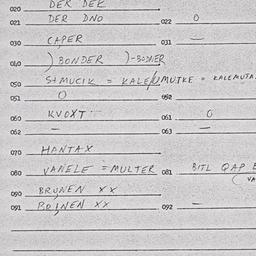 020 DER DEK
021 DER DNO 022 O
030 CAPER 031 —
040 ) BONDER )-BONER
050 STMUCIK = KALE MUTKE = KALEMUTA
051 O 052
060 KVOXT 061 O
062 — 063 —
070 HANTAX
080 VANELE = MULTER 081 BITL QAP
(VA
090 BRUNEN XX
091 BRUNEN XX 092 —